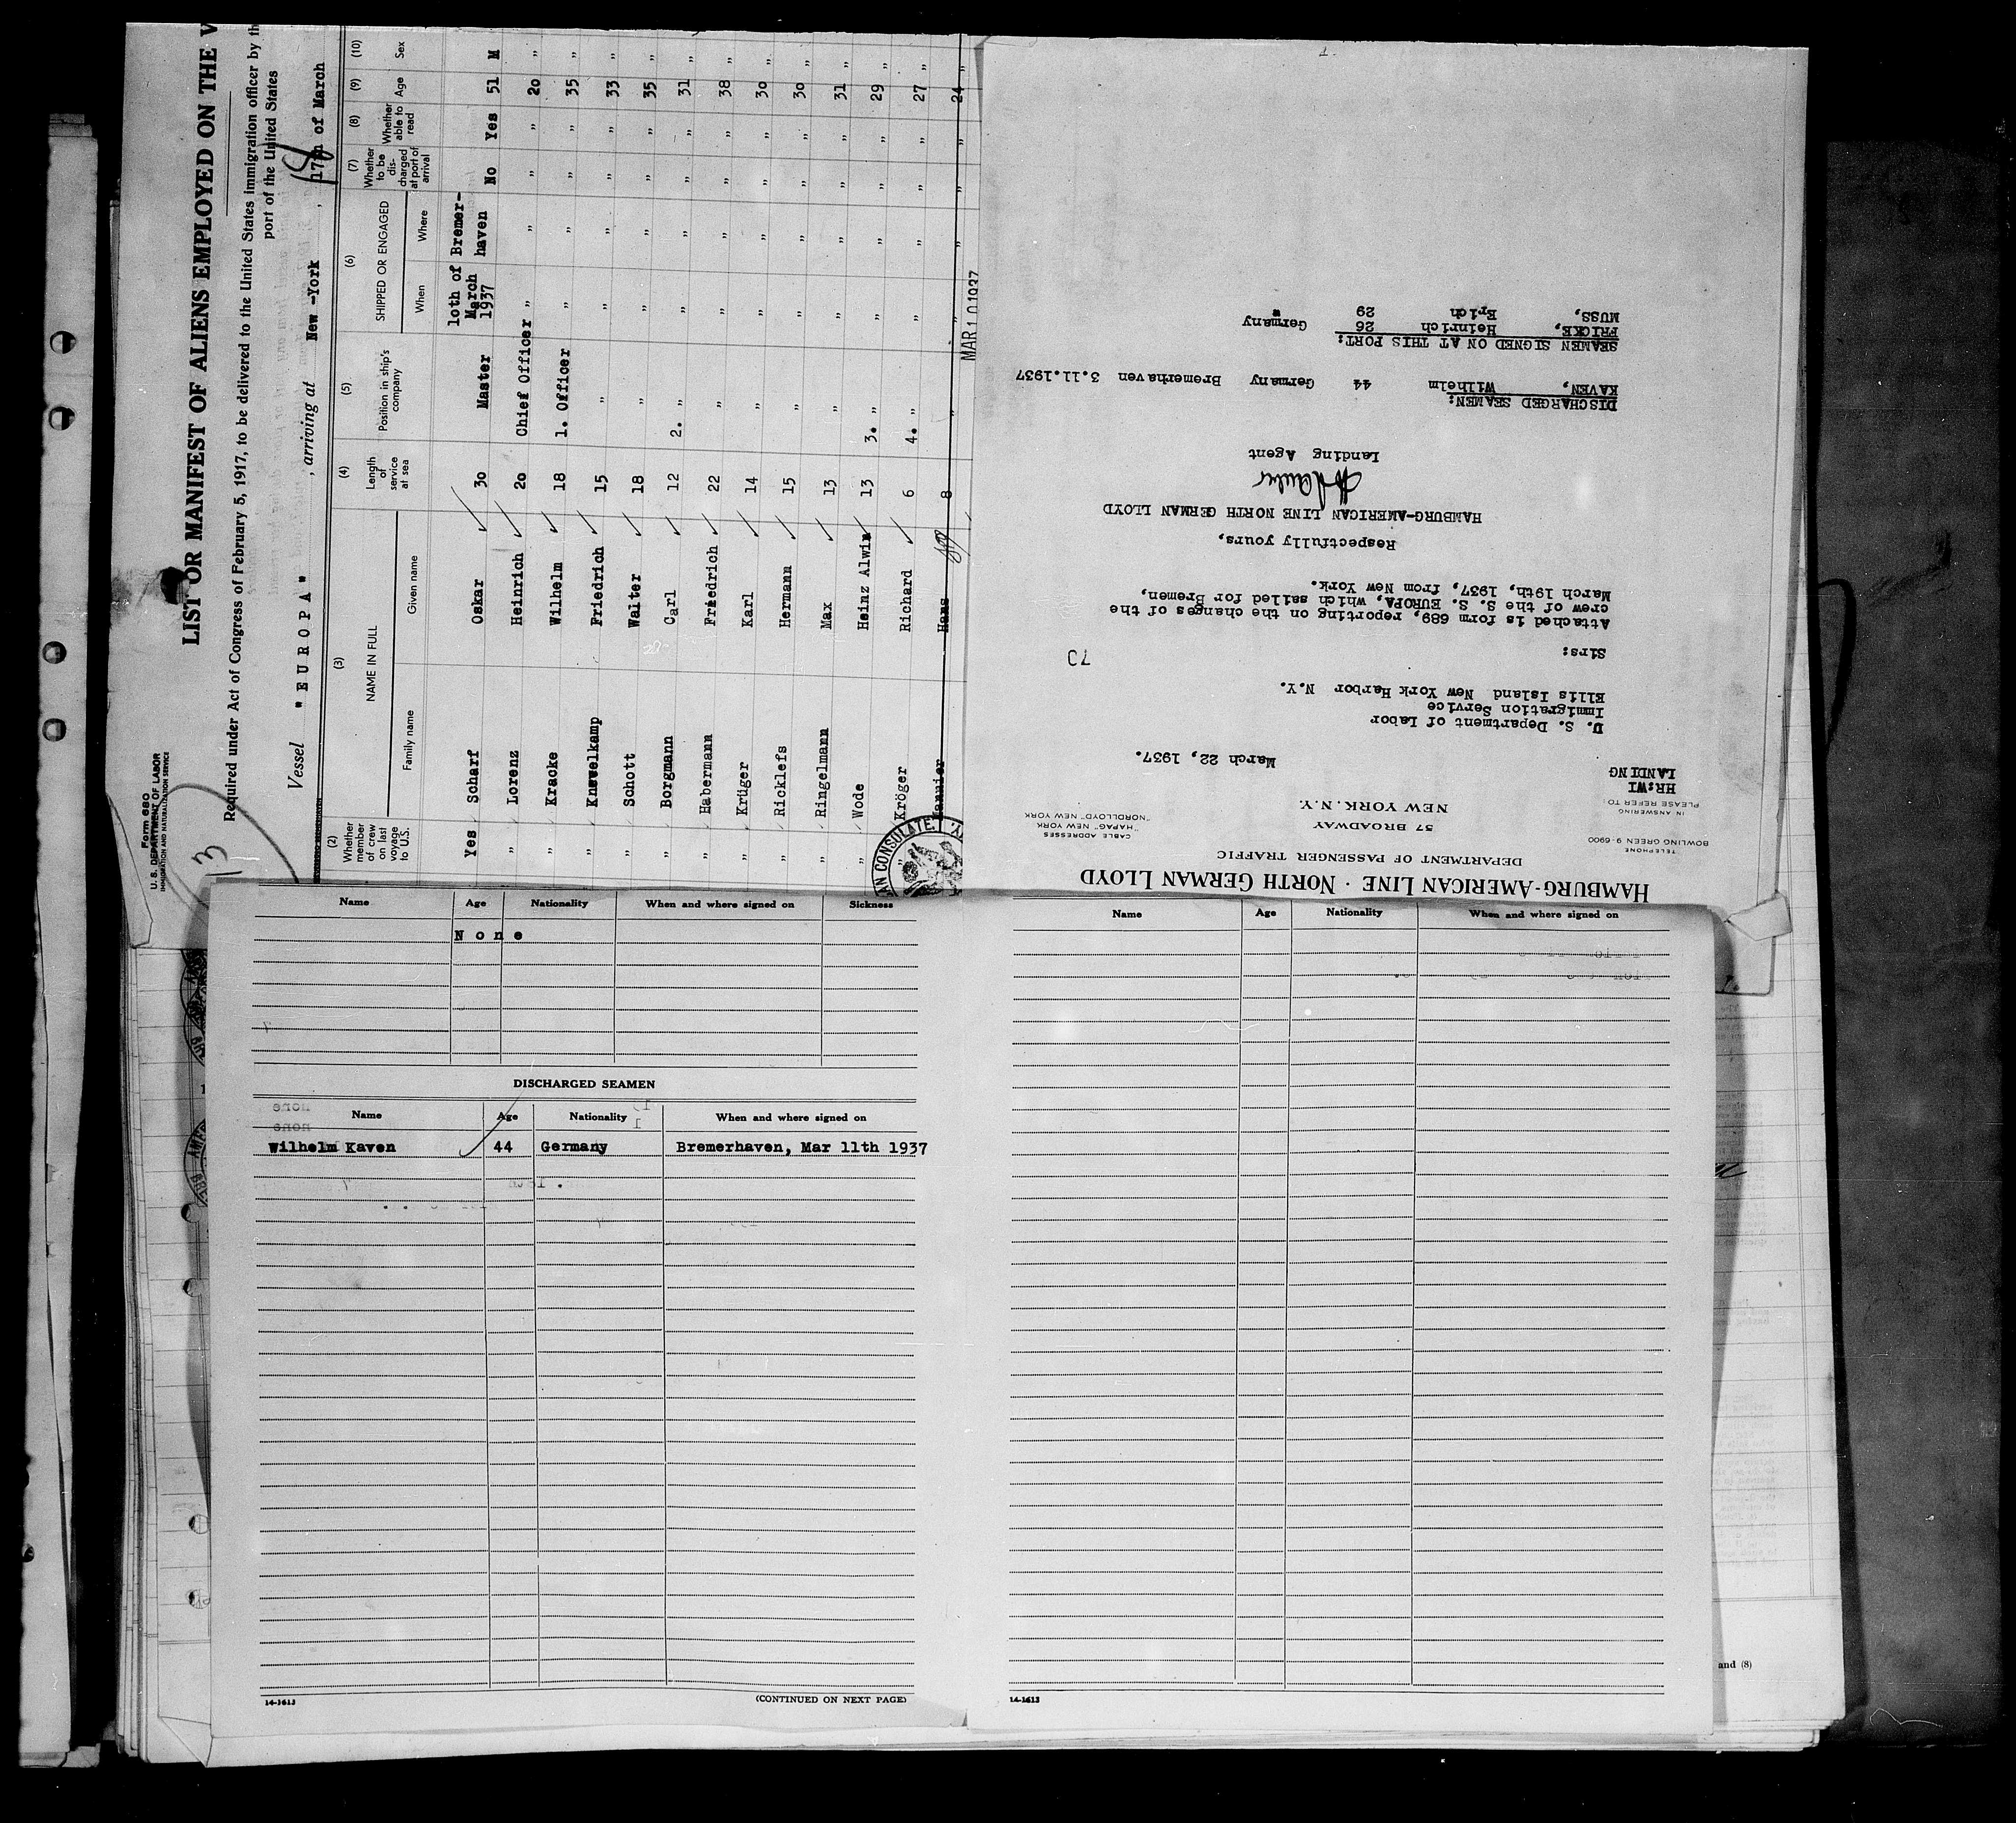 Form 680
U. S. DEPARTMENT OF LABOR
IMMIGRATION AND NATURALIZATION SERVICE
LIST OR MANIFEST OF ALIENS EMPLOYED ON THE V
Required under Act of Congress of February 5, 1917, to be delivered to the United States immigration officer by th
port of the United States
Vessel "EUROPA", arriving at New-York, 17th of March
18
(2) (3) (4) (5) (6) (7) (8) (9) (10)
Whether member of crew on last voyage to U.S. NAME IN FULL Length of service at sea Position in ship's company SHIPPED OR ENGAGED Whether to be discharged at port of arrival Whether able to read Age Sex
Family name Given name When Where
Yes Scharf Oskar 30 Master 10th of March 1937 Bremerhaven No Yes 51 M
" Lorenz Heinrich 20 Chief Officer " " " " 20 "
" Kracke Wilhelm 18 1. Officer " " " " 35 "
" Knevelkamp Friedrich 15 " " " " " 33 "
" Schott Walter 18 " " " " " 35 "
" Borgmann Carl 12 2. " " " " " 31 "
" Habermann Friedrich 22 " " " " " 38 "
" Krüger Karl 14 " " " " " 30 "
" Ricklefs Hermann 15 " " " " " 30 "
" Ringelmann Max 13 " " " " " 31 "
" Wode Heinz Alwin 13 3. " " " " " 29 "
" Kröger Richard 6 4. " " " " " 27 "
Hans 8 " " " " " 24 "
AN CONSULATE.
MAR 10 1937
HAMBURG-AMERICAN LINE · NORTH GERMAN LLOYD
DEPARTMENT OF PASSENGER TRAFFIC
57 BROADWAY
NEW YORK, N.Y.
TELEPHONE
BOWLING GREEN 9-6900
IN ANSWERING
PLEASE REFER TO:
HR:WI
LANDING
CABLE ADDRESSES
"HAPAG" NEW YORK
"NORDLLOYD" NEW YORK
March 22, 1937.
U. S. Department of Labor
Immigration Service
Ellis Island New York Harbor N.Y.
70
Sirs:
Attached is form 689, reporting on the changes of the
crew of the S. S. EUROPA, which sailed for Bremen,
March 19th, 1937, from New York.
Respectfully yours,
HAMBURG-AMERICAN LINE NORTH GERMAN LLOYD
Landing Agent
DISCHARGED SEAMEN:
KAVEN, Wilhelm 44 Germany Bremerhaven 3.11.1937
SEAMEN SIGNED ON AT THIS PORT:
FRICKE, Heinrich 26 Germany
MUSS, Erich 29 "
Name Age Nationality When and where signed on Sickness
None
DISCHARGED SEAMEN
Name Age Nationality When and where signed on
Wilhelm Kaven 44 Germany Bremerhaven, Mar 11th 1937
14-1613 (CONTINUED ON NEXT PAGE)
Name Age Nationality When and where signed on
14-1613
and (8)